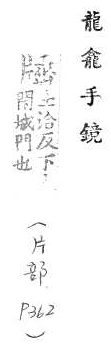 龍龕手鏡
洽反下
城門也
(片部 P362)